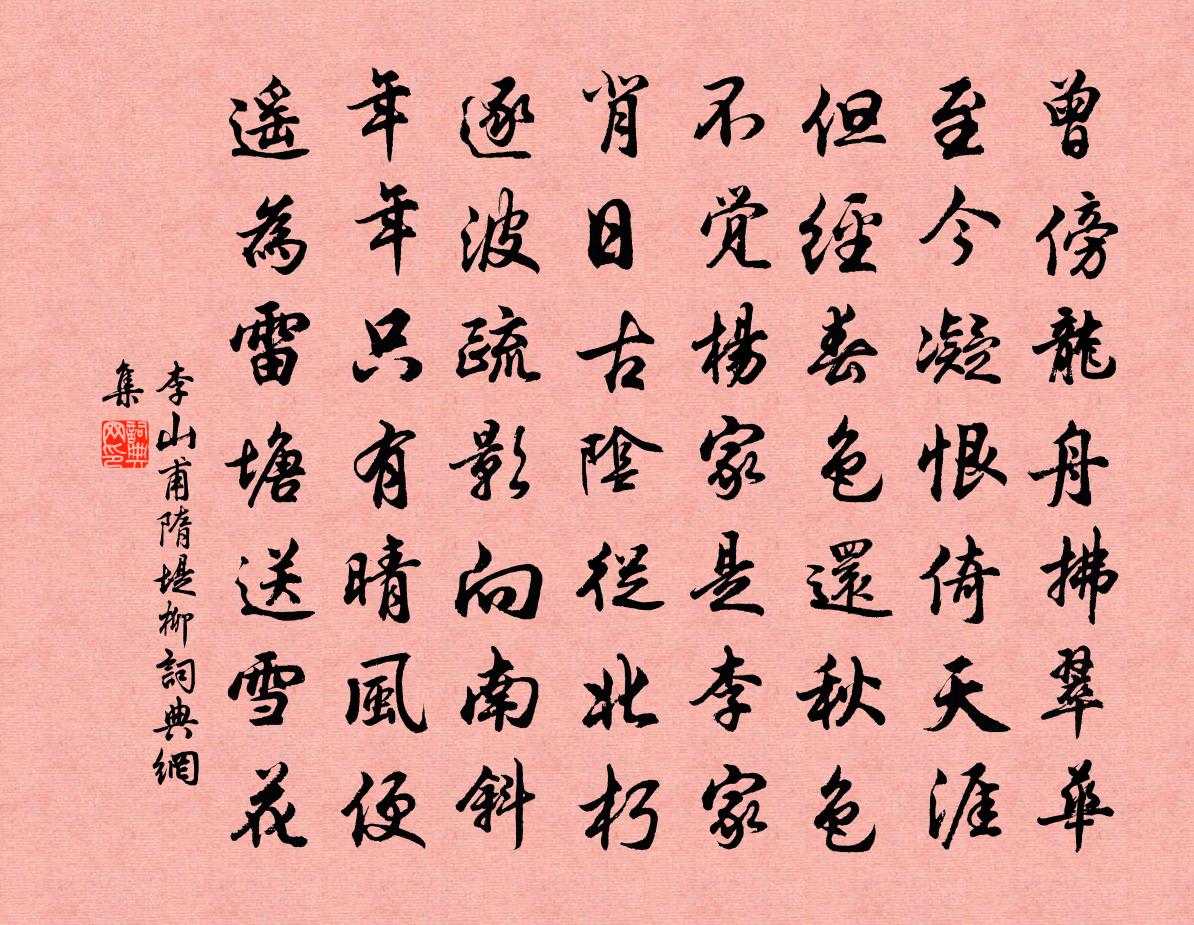 曾傍龍舟拂翠華
至今凝恨倚天涯
但經春色還秋色
不覚楊家是李家
背日古陰從北朽
逐波疏影向南斜
年年只有晴風便
遥為雷塘送雪花
李山甫隋堤柳詞典網
集
詞典网印